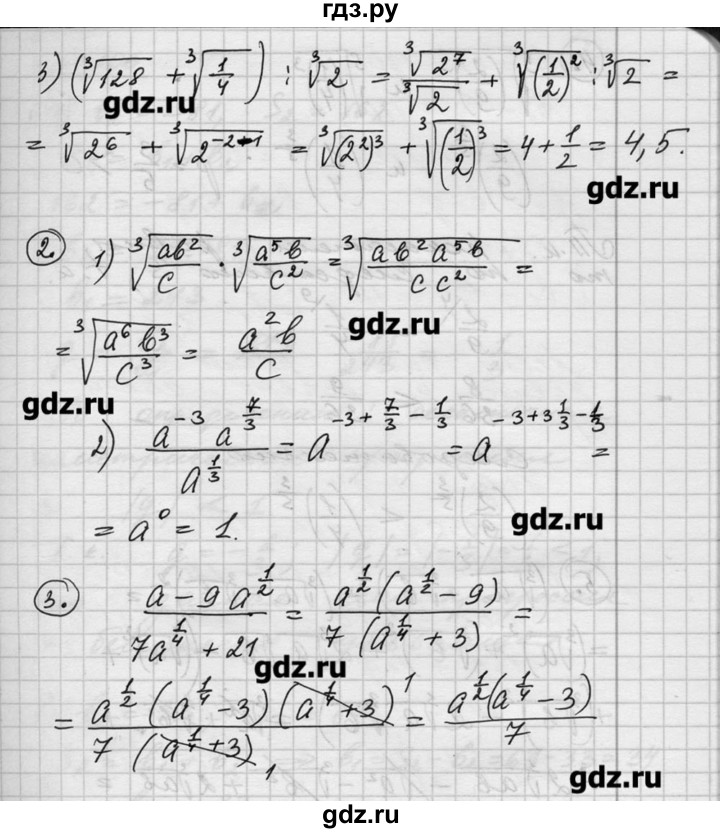 гдз.ру
3) (∛128 + ∛(1/4)) : ∛2 = ∛(2⁷)/∛2 + ∛((1/2)²) : ∛2 =
gdz.ru
= ∛(2⁶) + ∛(2^(-2-1)) = ∛((2²)³) + ∛((1/2)³) = 4 + 1/2 = 4,5.
gdz.ru
2. 1) ∛(ab²/c) · ∛(a⁵b/c²) = ∛(ab²a⁵b/(c c²)) =
gdz.ru
= ∛(a⁶b³/c³) = a²b/c
gdz.ru
2) (a^(-3) a^(7/3))/a^(1/3) = a^(-3 + 7/3 - 1/3) = a^(-3+3 1/3 - 1/3) =
= a⁰ = 1.
gdz.ru
3. (a - 9a^(1/2))/(7a^(1/4) + 21) = (a^(1/2)(a^(1/2) - 9))/(7(a^(1/4) + 3)) =
gdz.ru
= (a^(1/2)(a^(1/4) - 3)(a^(1/4) + 3) 1)/(7(a^(1/4) + 3) 1) = (a^(1/2)(a^(1/4) - 3))/7
gdz.ru
gdz.ru